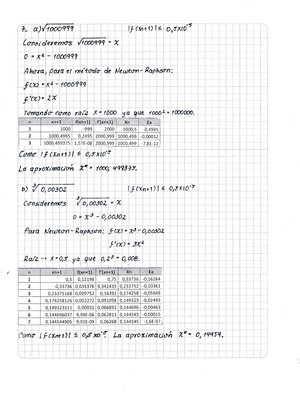 7. a) √1000999 |f(xn+1)| ≤ 0,5x10⁻⁵
Consideremos √1000999 = x
0 = x² - 1000999
Ahora, para el método de Newton-Raphson:
f(x) = x² - 1000999
f'(x) = 2x
Tomando como raíz x = 1000 ya que 1000² = 1000000.
n xn+1 f(xn+1) f'(xn+1) Xn Ea
1 1000 -999 2000 1000,5 0,4995
2 1000,4995 0,2495 2000,999 1000,499 -0,00012
3 1000,499375 1,57E-08 2000,999 1000,499 -7,8E-12
Como |f(xn+1)| ≤ 0,5x10⁻⁵
La aproximación X* = 1000,499375.
b) ∛0,00302 |f(xn+1)| ≤ 0,5x10⁻⁵
Consideremos ∛0,00302 = x
0 = x³ - 0,00302
Para Newton-Raphson: f(x) = x³ - 0,00302
f'(x) = 3x²
Raíz → x = 0,5 ya que 0,2³ = 0,008.
n xn+1 f(xn+1) f'(xn+1) Xn Ea
1 0,5 0,12198 0,75 0,33736 -0,16264
2 0,33736 0,035376 0,341435 0,233752 -0,10361
3 0,23375168 0,009752 0,16392 0,174258 -0,05949
4 0,174258126 0,002272 0,091098 0,149323 -0,02493
5 0,149323313 0,00031 0,066892 0,144696 -0,00463
6 0,144696037 9,49E-06 0,062811 0,144545 -0,00015
7 0,144544905 9,91E-09 0,06268 0,144545 -1,6E-07
Como |f(xn+1)| ≤ 0,5x10⁻⁵. La aproximación X* = 0,14454.